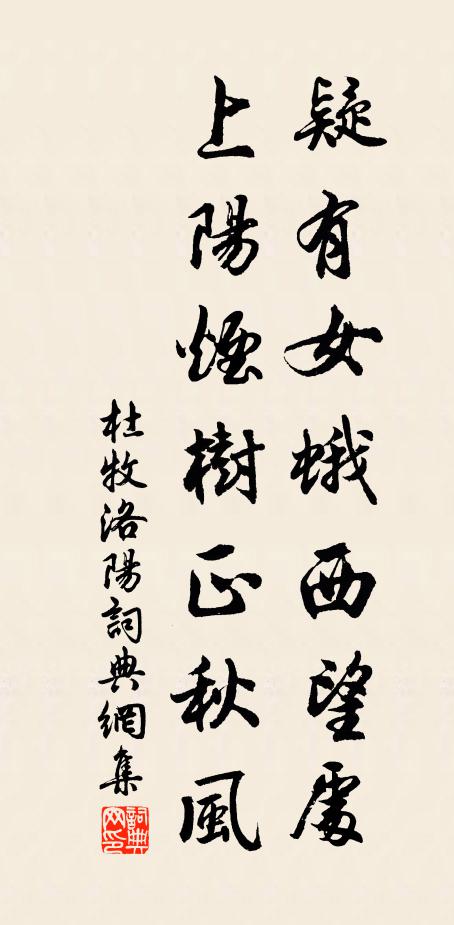 疑有女蛾西望處
上陽煙樹正秋風
杜牧洛陽詞典網集
詞典网印